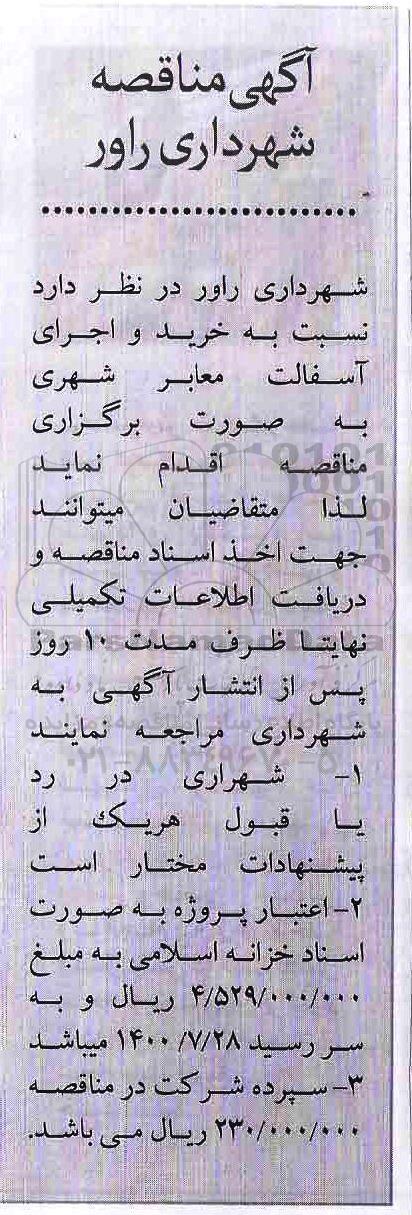 آگهی مناقصه
شهرداری راور
شهرداری راور در نظر دارد
نسبت به خرید و اجرای
آسفالت معابر شهری
به صورت برگزاری
مناقصه اقدام نماید
لذا متقاضیان میتوانند
جهت اخذ اسناد مناقصه و
دریافت اطلاعات تکمیلی
نهایتا ظرف مدت ۱۰ روز
پس از انتشار آگهی به
شهرداری مراجعه نمایند
۱- شهراری در رد
یا قبول هریک از
پیشنهادات مختار است
۲- اعتبار پروژه به صورت
اسناد خزانه اسلامی به مبلغ
۴/۵۲۹/۰۰۰/۰۰۰ ریال و به
سر رسید ۱۴۰۰/۷/۲۸ میباشد
۳- سپرده شرکت در مناقصه
۲۳۰/۰۰۰/۰۰۰ ریال می باشد.